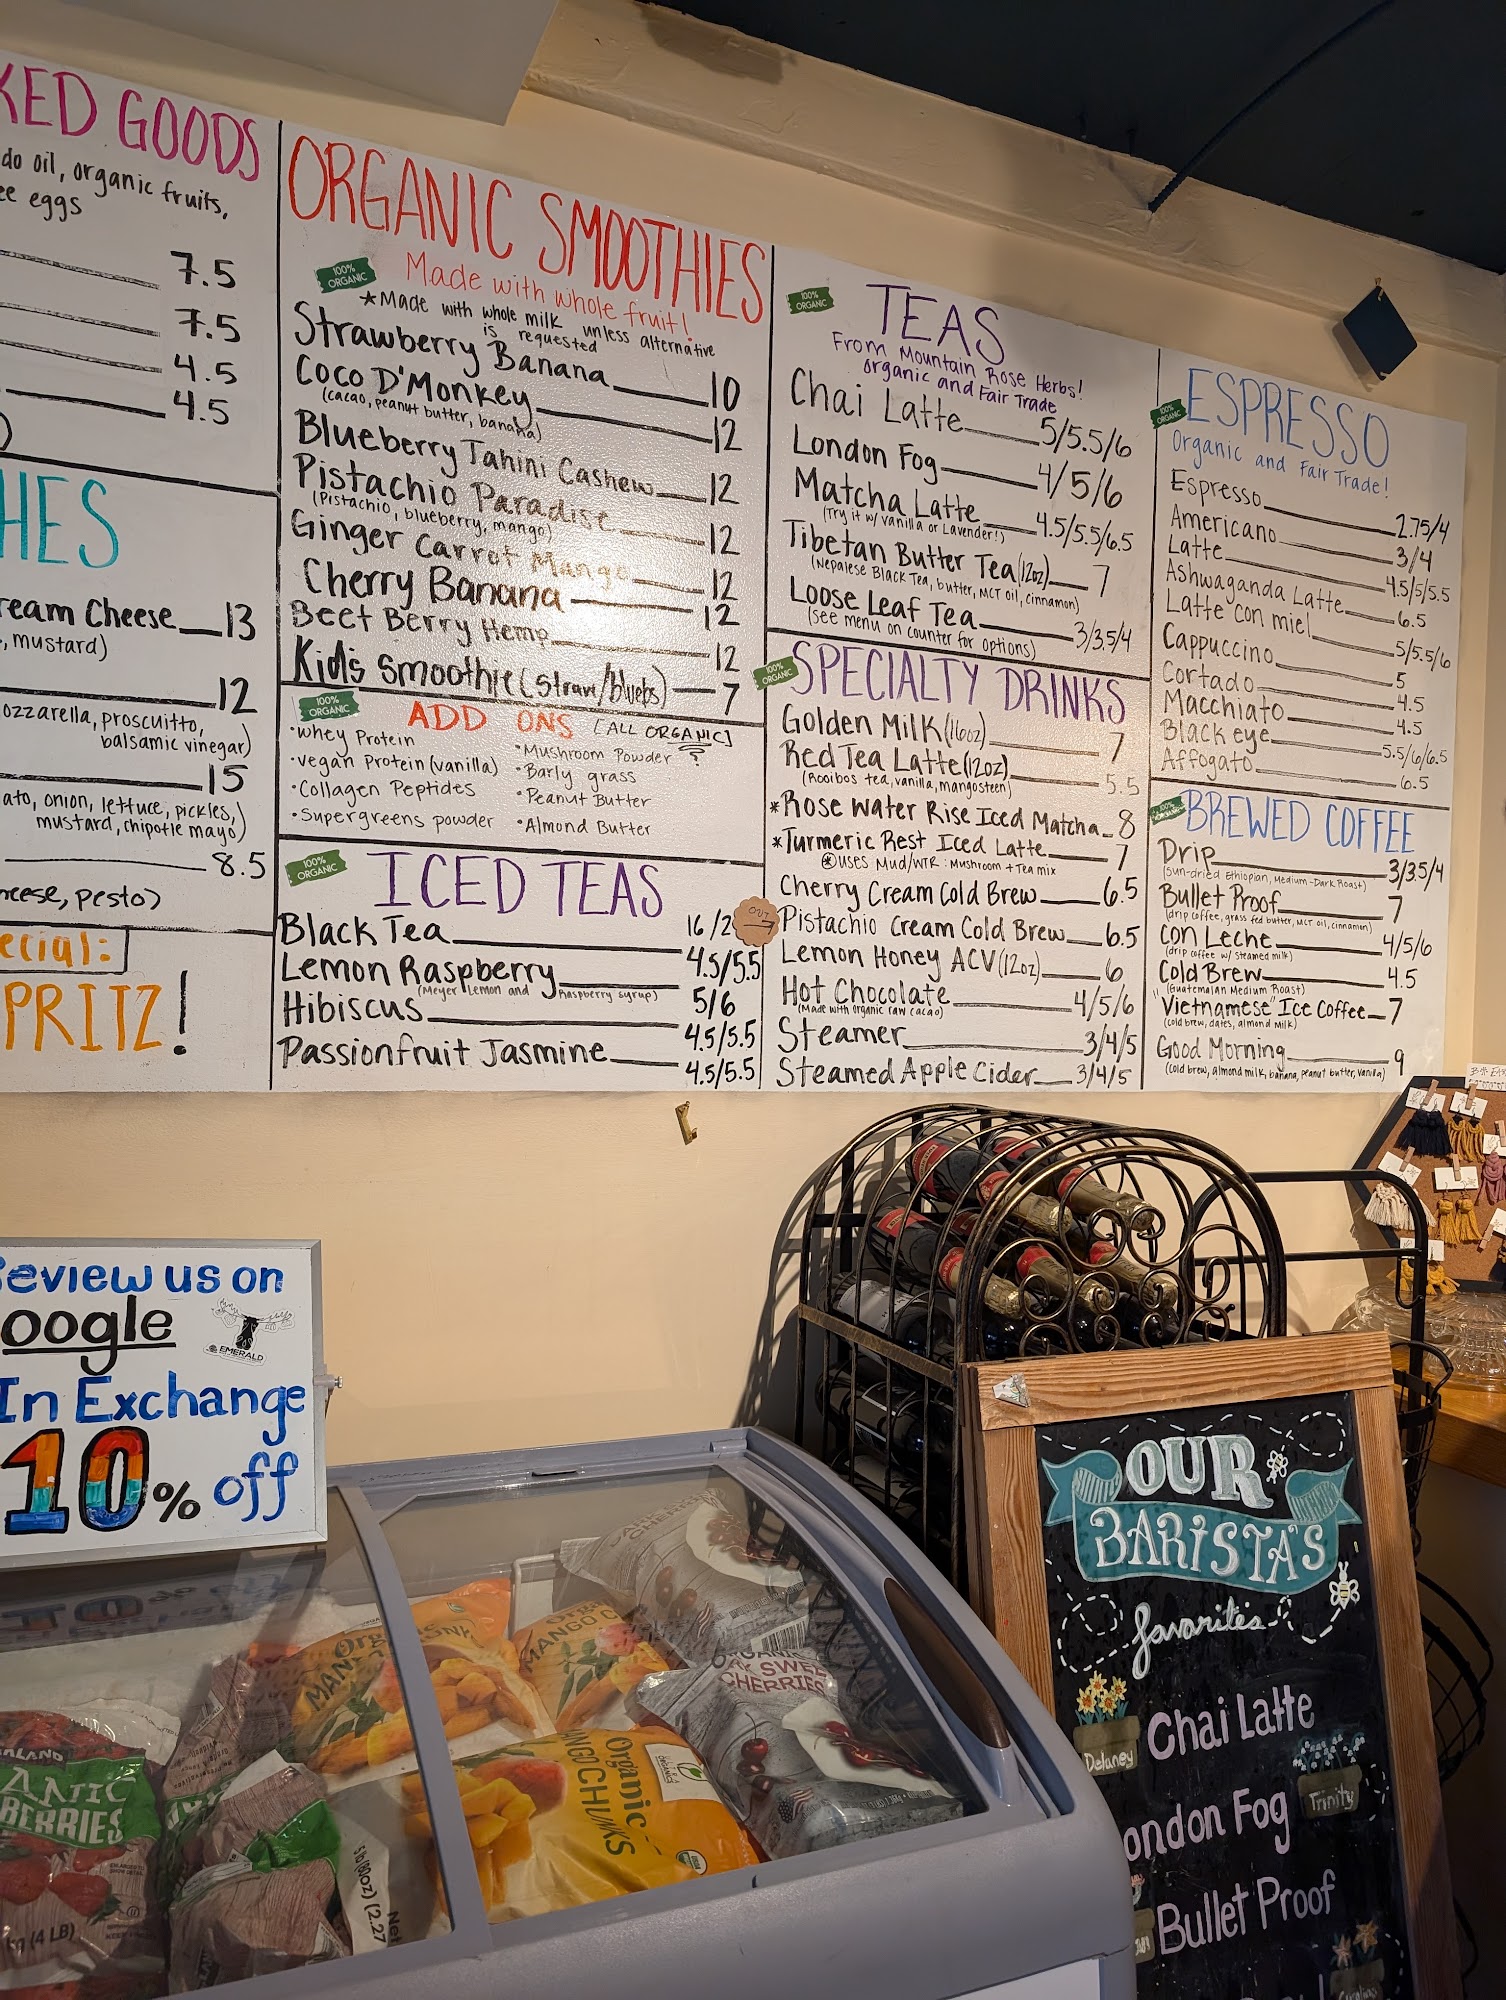 KED GOODS
do oil, organic fruits,
ee eggs
7.5
7.5
4.5
4.5
)
HES
ream Cheese 13
, mustard)
12
ozzarella, proscuitto,
balsamic vinegar)
15
ato, onion, lettuce, pickles,
mustard, chipotle mayo)
8.5
heese, pesto)
ecial:
PRITZ!
ORGANIC SMOOTHIES
100% ORGANIC
Made with whole fruit!
*Made with whole milk unless alternative
is requested
Strawberry Banana 10
Coco D'Monkey 12
(cacao, peanut butter, banana)
Blueberry Tahini Cashew 12
Pistachio Paradise 12
(Pistachio, blueberry, mango)
Ginger Carrot Mango 12
Cherry Banana 12
Beet Berry Hemp 12
Kid's smoothie (straw/bluebs) 7
100% ORGANIC
ADD ONS [ALL ORGANIC]
•Whey Protein
•Vegan Protein (vanilla)
•Collagen Peptides
•Supergreens powder
•Mushroom Powder
•Barly grass
•Peanut Butter
•Almond Butter
100% ORGANIC
ICED TEAS
16/2
Black Tea 4.5/5.5
Lemon Raspberry 5/6
(Meyer Lemon and Raspberry syrup)
Hibiscus 4.5/5.5
Passionfruit Jasmine 4.5/5.5
100% ORGANIC
TEAS
From Mountain Rose Herbs!
Organic and Fair Trade
Chai Latte 5/5.5/6
London Fog 4/5/6
Matcha Latte 4.5/5.5/6.5
(Try it w/ vanilla or Lavender!)
Tibetan Butter Tea (12oz) 7
(Nepalese Black Tea, butter, MCT oil, cinnamon)
Loose Leaf Tea 3/3.5/4
(see menu on counter for options)
100% ORGANIC
SPECIALTY DRINKS
Golden Milk (16oz) 7
Red Tea Latte (12oz) 5.5
(Rooibos tea, vanilla, mangosteen)
*Rose Water Rise Iced Matcha 8
*Turmeric Rest Iced Latte 7
*uses Mud/WTR: Mushroom + Tea mix
Cherry Cream Cold Brew 6.5
OUT
Pistachio Cream Cold Brew 6.5
Lemon Honey ACV (12oz) 6
Hot Chocolate 4/5/6
(Made with organic raw cacao)
Steamer 3/4/5
Steamed Apple Cider 3/4/5
100% ORGANIC
ESPRESSO
Organic and Fair Trade!
Espresso 2.75/4
Americano 3/4
Latte 4.5/5/5.5
Ashwaganda Latte 6.5
Latte con miel 5/5.5/6
Cappuccino 5
Cortado 4.5
Macchiato 4.5
Black eye 5.5/6/6.5
Affogato 6.5
BREWED COFFEE
Drip 3/3.5/4
(Sun-dried Ethiopian, Medium-Dark Roast)
Bullet Proof 7
(drip coffee, grass fed butter, MCT oil, cinnamon)
Con Leche 4/5/6
(drip coffee w/ steamed milk)
Cold Brew 4.5
(Guatemalan Medium Roast)
"Vietnamese" Ice Coffee 7
(cold brew, dates, almond milk)
Good Morning 9
(cold brew, almond milk, banana, peanut butter, vanilla)
Review us on
oogle
EMERALD
In Exchange
10% off
OUR
BARISTA'S
favorites
Chai Latte
Delaney
ondon Fog
Trinity
Bullet Proof
Organic
MANGO CHUNKS
ORGANIC
DARK SWEET
CHERRIES
ANTIC
BERRIES
kg (4 LB)